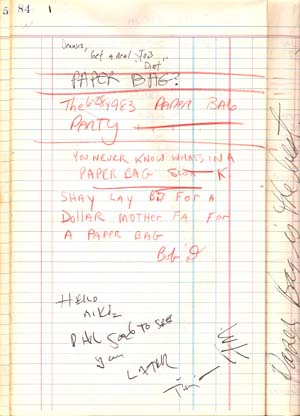 5 84 1
Dennis,
Get a real "JOB
"Diet"
PAPER BAG?
The 6-28-1983 PAPER BAG
PARTY
YOU NEVER KNOW WHATS IN A
PAPER BAG K.
SHAY LAY FOR A
DOLLAR MOTHER FA FOR
A PAPER BAG
Bob D
HELLO
MIKE
PHIL Good TO SEE
you
LATER
Jim
Paper Bag is the best